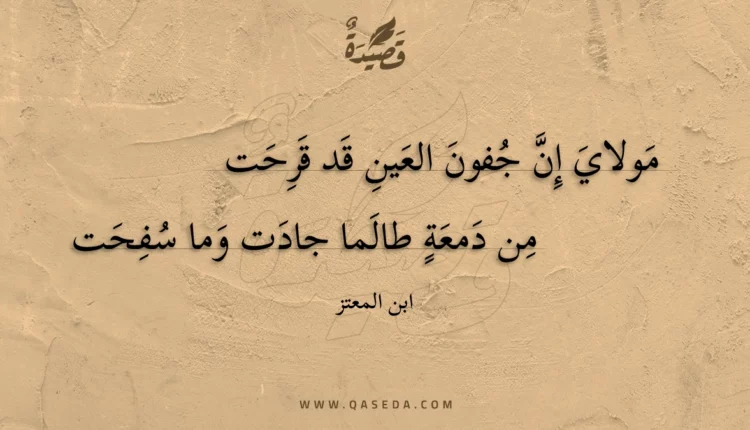 قَصِيدَةٌ
مَولايَ إِنَّ جُفونَ العَينِ قَد قَرِحَت
مِن دَمعَةٍ طالَما جادَت وَما سُفِحَت
ابن المعتز
WWW.QASEDA.COM